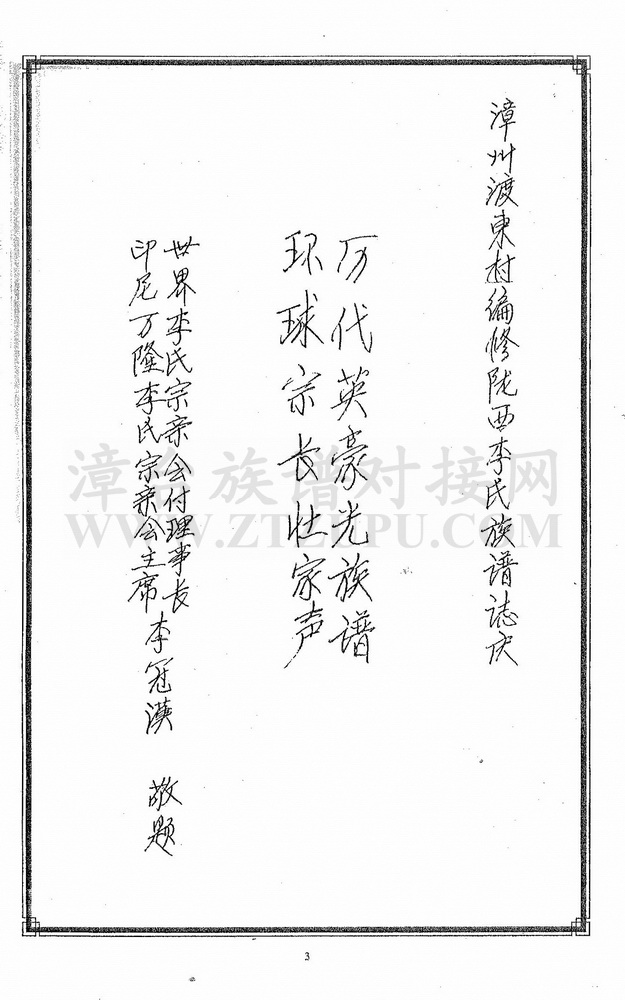 漳州渡東村编修陇西李氏族谱誌庆
历代英豪光族谱
环球宗长壮家声
世界李氏宗亲会付理事长
印尼万隆李氏宗亲会主席 李冠漢 敬题
漳台族谱对接网
WWW.ZTZUPU.COM
3